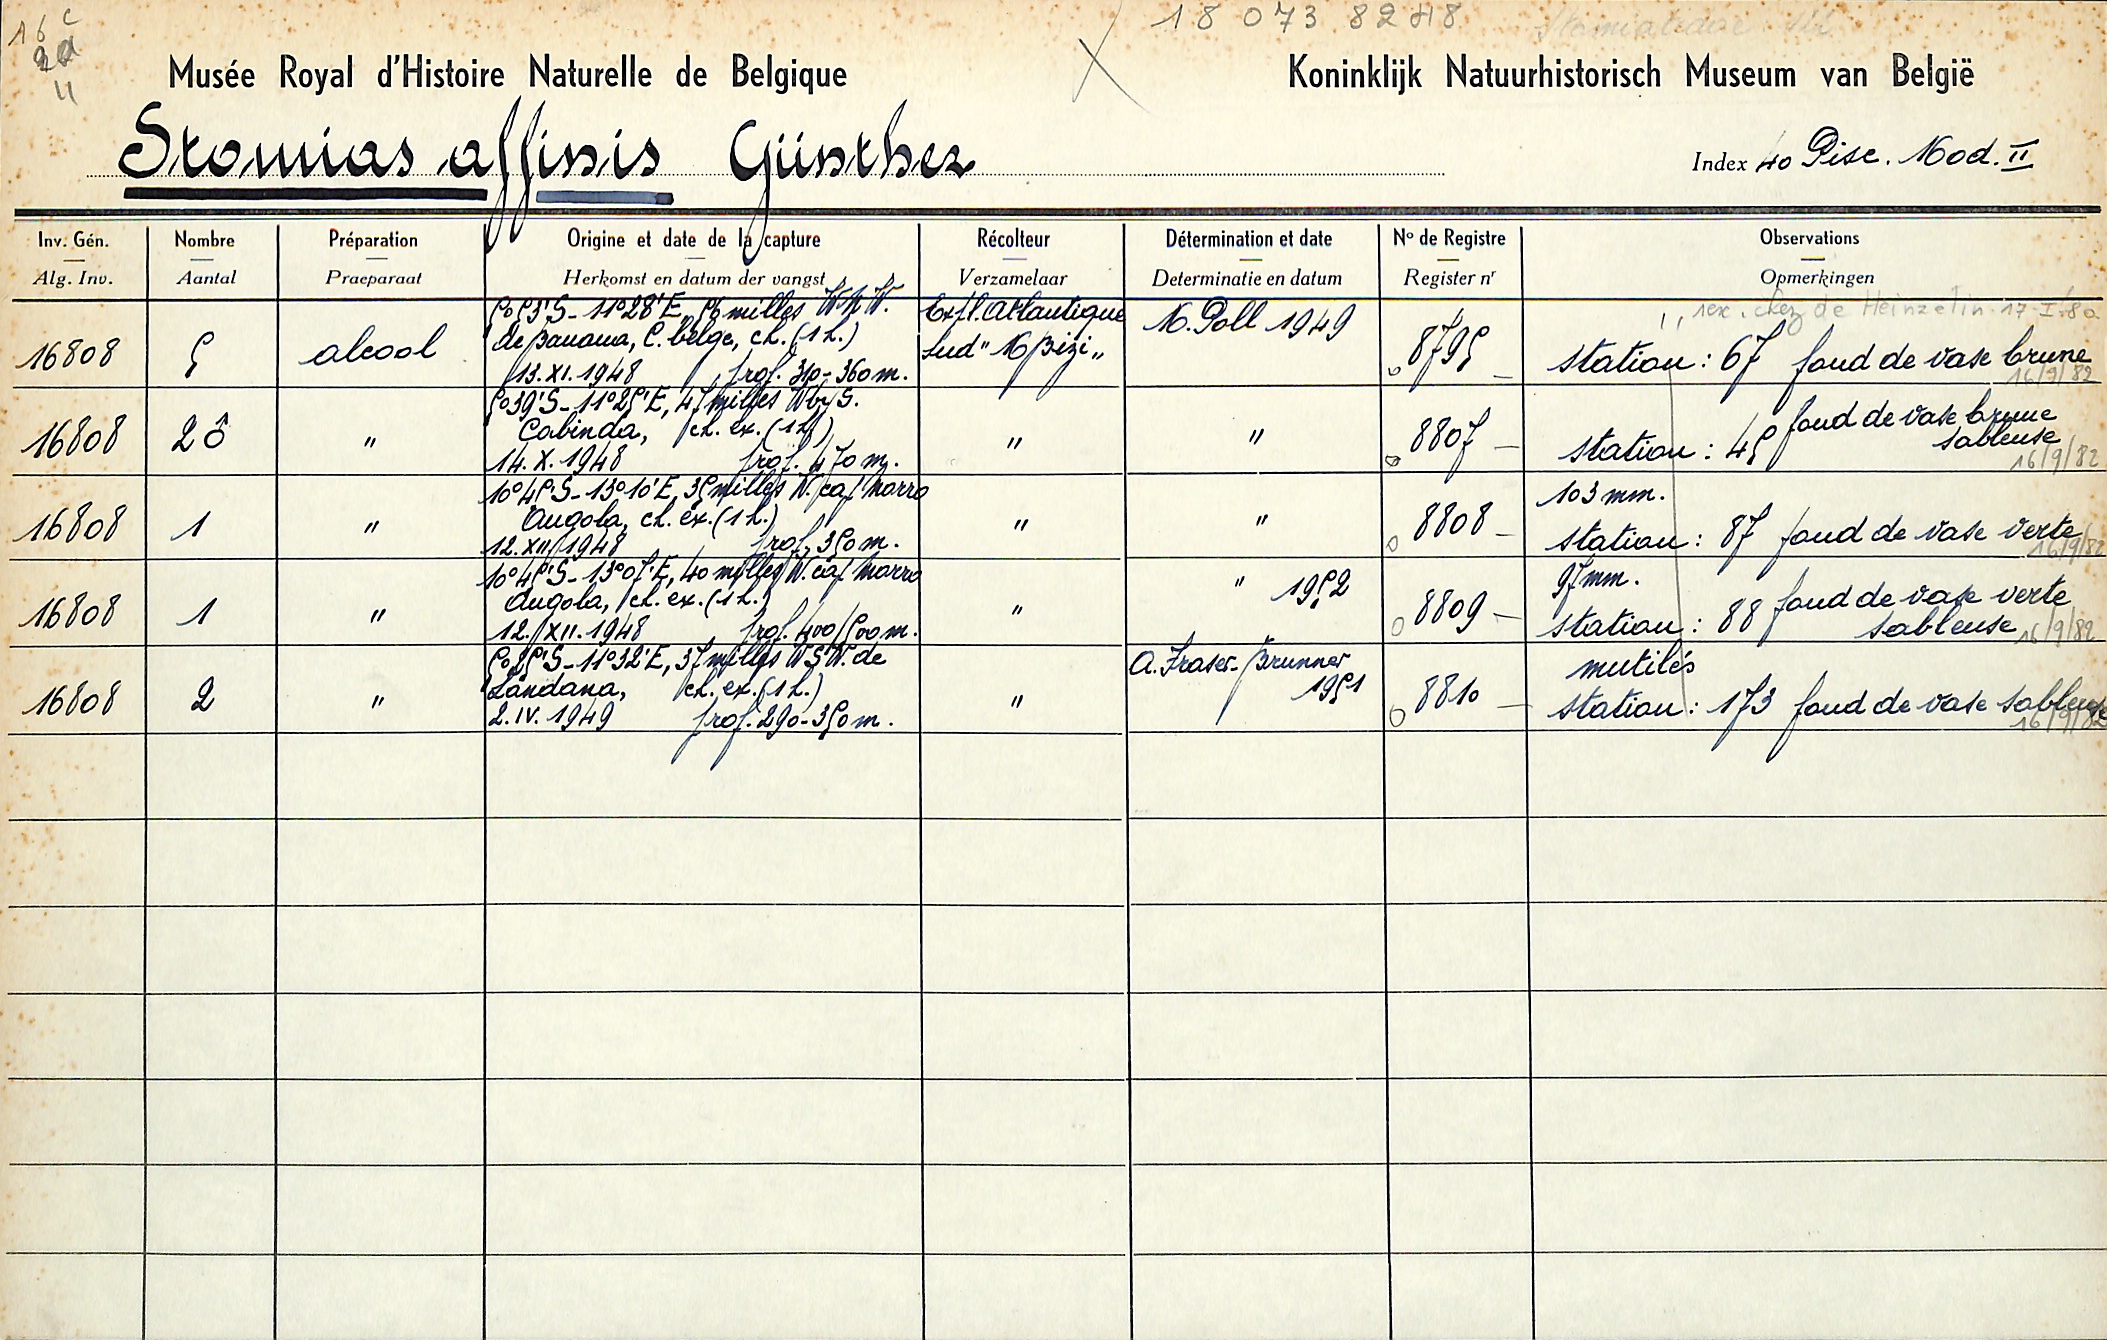 16 c
2a
11
18 073 82 48
Musée Royal d'Histoire Naturelle de Belgique
Koninklijk Natuurhistorisch Museum van België
Stomias affinis Günther
Index 40 Pisc. Mod. II
Inv. Gén. Nombre Préparation Origine et date de la capture Récolteur Détermination et date No de Registre Observations
Alg. Inv. Aantal Praeparaat Herkomst en datum der vangst Verzamelaar Determinatie en datum Register nr Opmerkingen
1 ex. chez de Heinzelin 17-I-80
5°53'S-11°28'E, 56 milles W.N.W. Exp. Atlantique M. Poll 1949
16808 5 alcool de Banana, C. belge, ch. (1 h.) Sud "M'Bizi" 8795 station: 67 fond de vase brune
13.XI.1948 prof. 310-360 m. 16/9/82
5°39'S-11°25'E, 47 milles W by S. fond de vase brune
16808 2 ♂ " Cabinda, ch. ex. (1 h.) " " 8807 station: 45 sableuse
14.X.1948 prof. 470 m. 16/9/82
10°45'S-13°10'E, 35 milles W. cap Morro 103 mm.
16808 1 " Angola, ch. ex. (1 h.) " " 8808 station: 87 fond de vase verte
12.XII.1948 prof. 350 m. 16/9/82
10°45'S-13°07'E, 40 milles W. cap Morro " 1952 97 mm. fond de vase verte
16808 1 " Angola, ch. ex. (1 h.) " 8809 station: 88 sableuse
12.XII.1948 prof. 400/500 m. 16/9/82
5°25'S-11°32'E, 37 milles WSW. de A. Fraser-Brunner mutilés
16808 2 " Landana, ch. ex. (1 h.) " 1951 8810 station: 173 fond de vase sableuse
2.IV.1949 prof. 290-350 m. 16/9/82